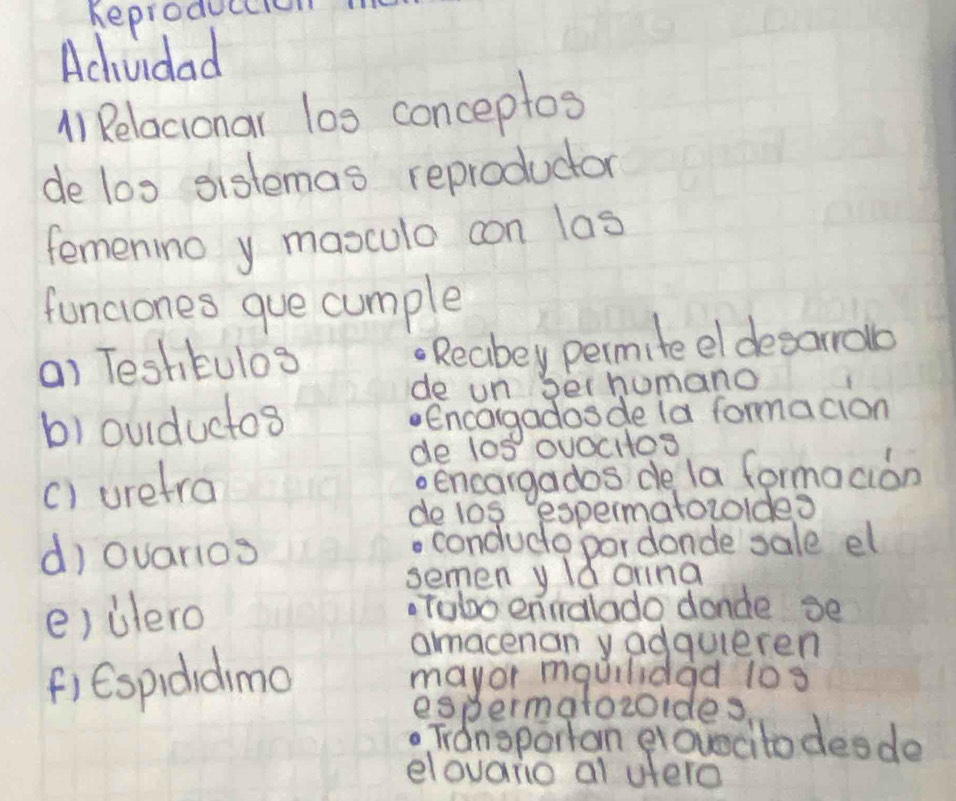 Reproducción
Actividad
1) Relacionar los conceptos
de los sistemas reproductor
femenino y masculo con las
funciones que cumple
a) Testikulos
b) oviductos
c) uretra
d) ovarios
e) útero
f) Espididimo
• Recibe y permite el desarrollo
de un ser humano
• Encargados de la formacion
de los ovocitos
• encargados de la formación
de los espermatozoides
• conducto por donde sale el
semen y la orina
• Tubo enrrallado donde se
almacenan y adquieren
mayor mouilidad los
espermatozoides.
• Transportan el ovocito desde
el ovario al utero